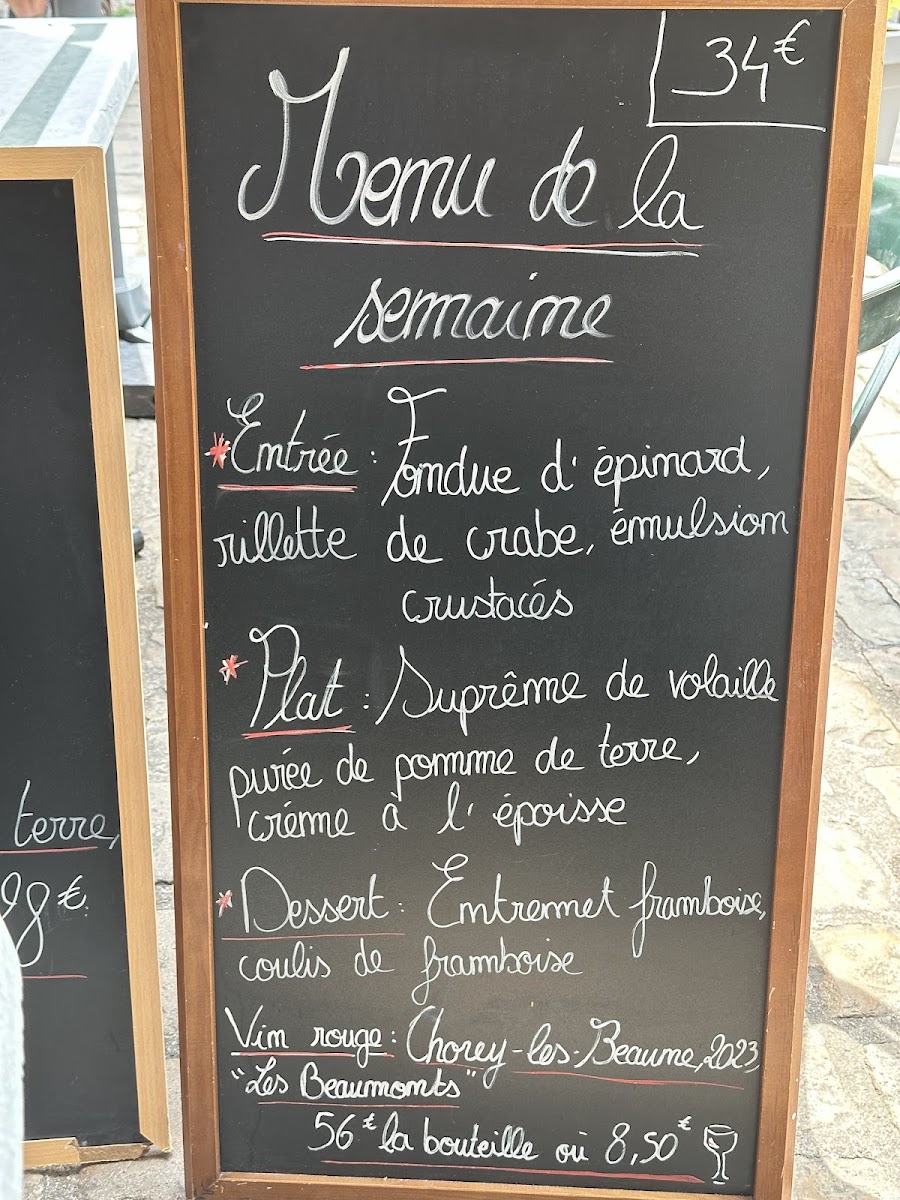 34€
Menu de la
semaine
*Entrée : Fondue d'épinard,
rillette de crabe, émulsion
crustacés
*Plat : Suprême de volaille
purée de pomme de terre,
créme à l'époisse
*Dessert : Entremet framboise,
coulis de framboise
Vin rouge : Chorey-les-Beaune, 2023
"Les Beaumonts"
56€ la bouteille ou 8,50€
terre,
98€.